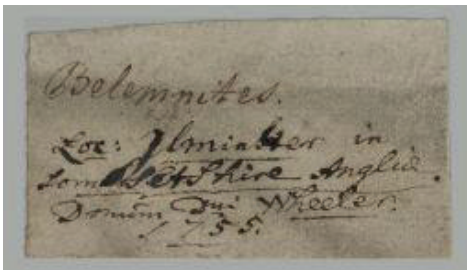 Belemnites.
Loc: Ilminster in
Sommersetshire Anglie.
Donum Dni Wheeler.
1755.